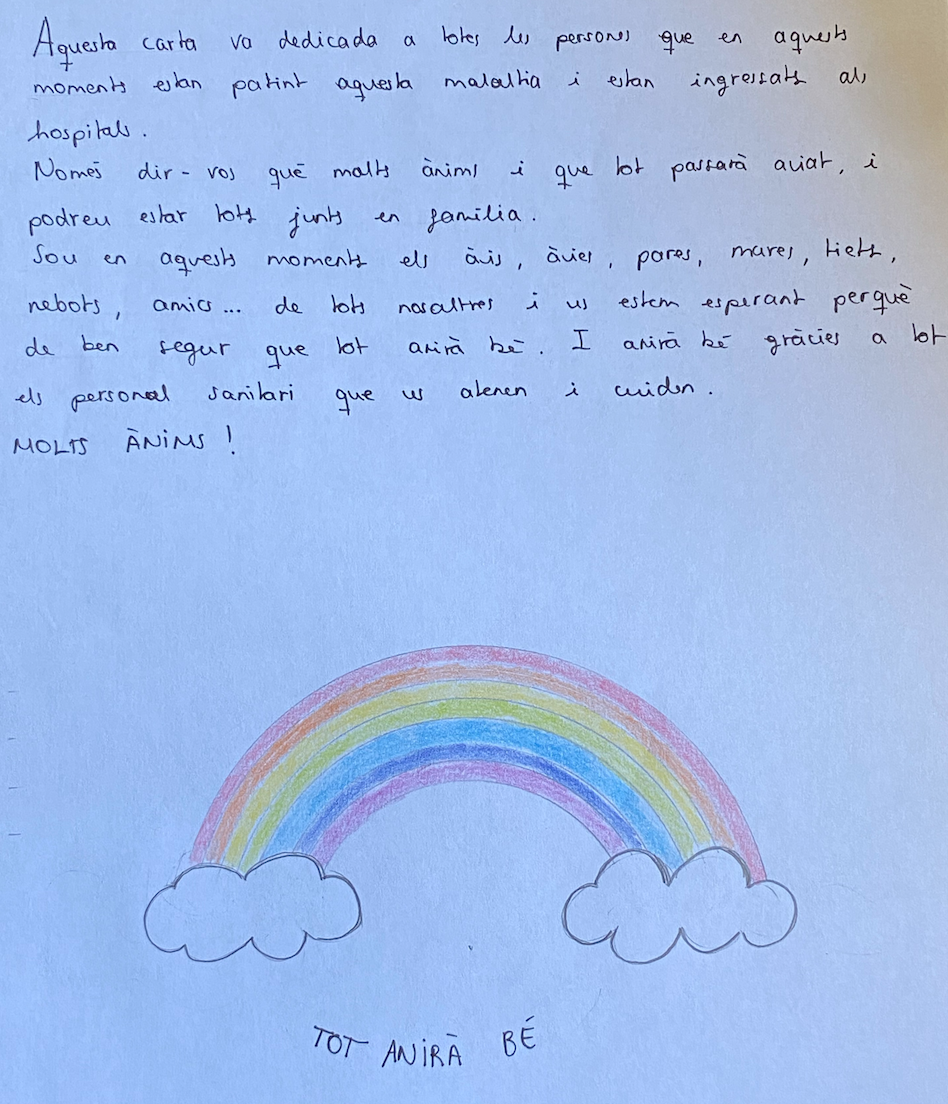 Aquesta carta va dedicada a totes les persones que en aquests
moments estan patint aquesta malaltia i estan ingressats als
hospitals.
Només dir-vos què molts ànims i que tot passarà aviat, i
podreu estar tots junts en familia.
Sou en aquests moments els àvis, àvies, pares, mares, tiets,
nebots, amics... de tots nosaltres i us estem esperant perquè
de ben segur que tot anirà bé. I anirà bé gràcies a tot
els personal sanitari que us atenen i cuiden.
MOLTS ÀNIMS!
TOT ANIRÀ BÉ